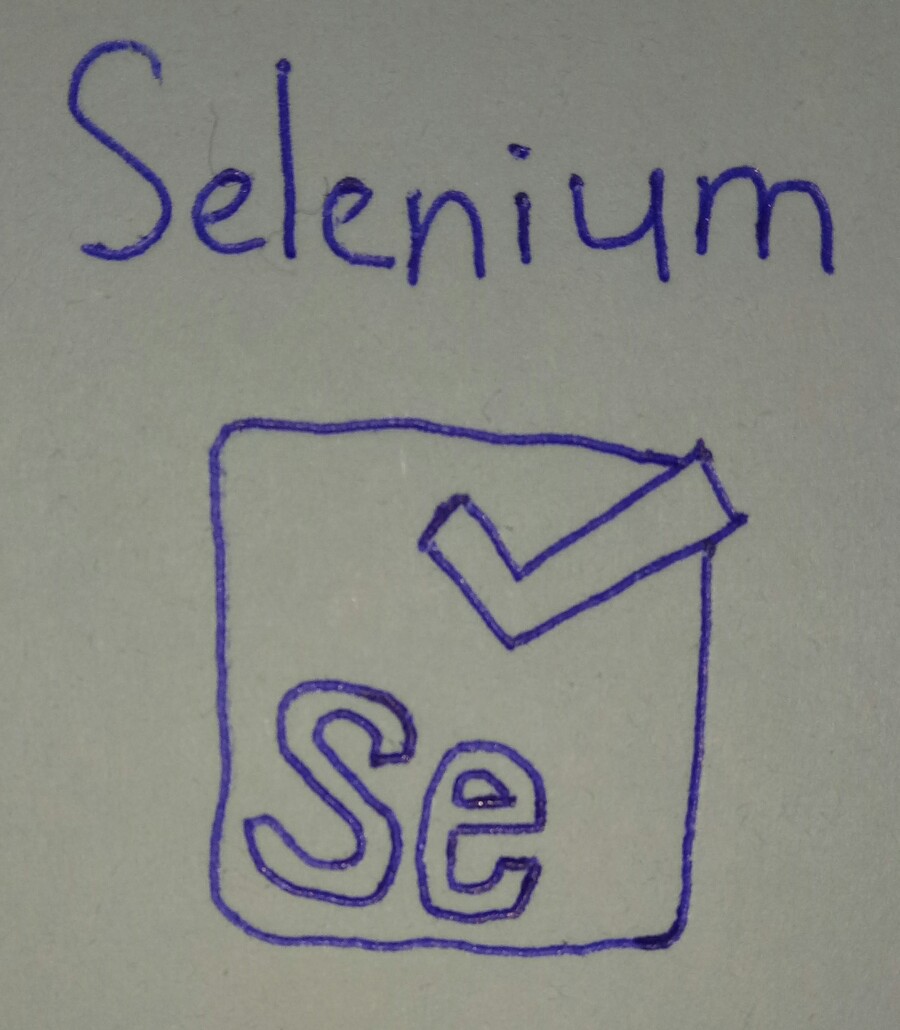 Selenium
Se